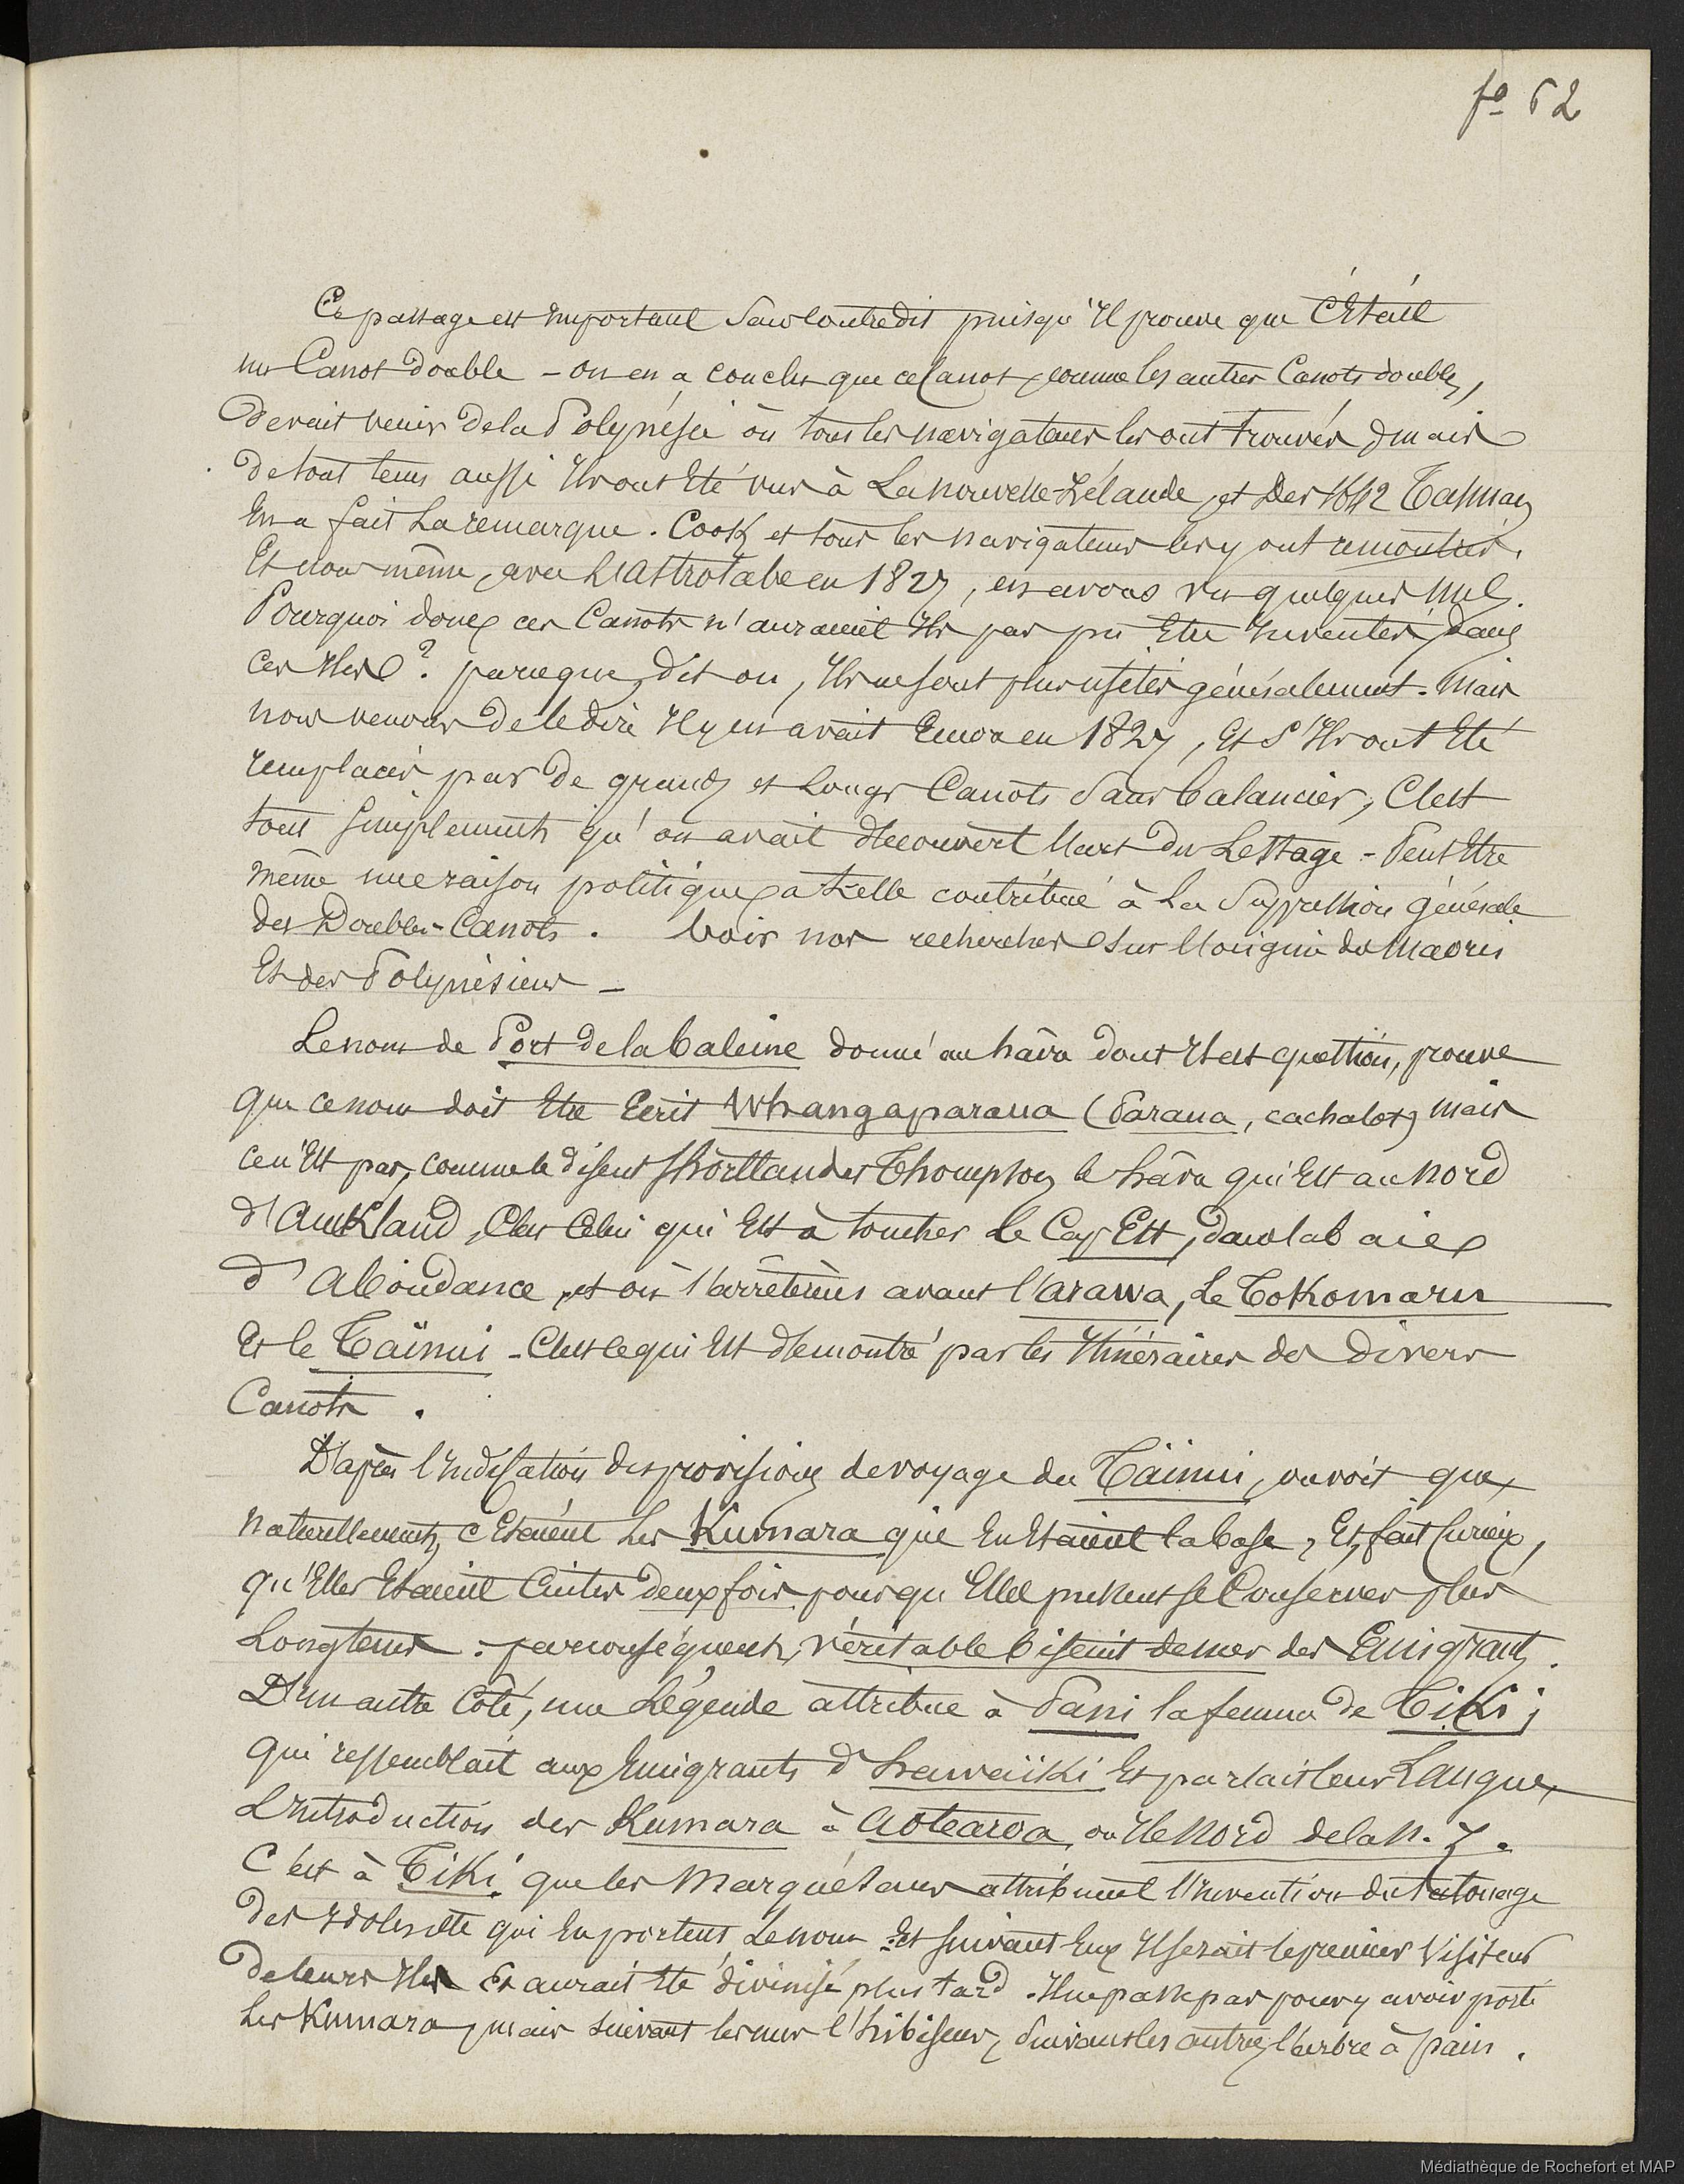 fo 62
Ce passage est important sans contredit puisqu'il prouve que c'était
un Canot double - on en a conclu que ce Canot, comme les autres Canots doubles,
devait venir de la Polynésie où tous les navigateurs les ont trouvés, mais
de tout tems aussi ils ont été vus à La nouvelle-Zélande, et Dès 1642 Tasman
en a fait La remarque. Cook et tous les navigateurs les y ont remontrés.
Et nous même, avec L'Astrolabe en 1827, en avons vu quelques uns.
Pourquoi donc ces Canots n'auraient ils pas pu Etre Inventés dans
ces Iles? parceque, dit on, Ils ne sont plus usités généralement. Mais
nous venons de le dire Il y en avait Encore en 1827, Et S'Ils ont Eté
remplacés par de grands et Longs Canots Sans balancier, C'est
tout simplement qu'on avait découvert l'art du Lestage - Peut Etre
même une raison politique a t-elle contribué à La Suppression générale
des Doubles-Canots. Voir nos recherches sur l'origine des Maoris
Et des Polynésiens -
Le nom de Port de la baleine donné au hâvre dont Il est question, prouve
que ce nom doit Etre Ecrit Whangaparaua (Paraua, cachalot) mais
ce n'Est pas, comme le disent Shortland et Thompson le hâvre qui Est au nord
d'Auckland, C'est Celui qui Est à toucher le Cap Est, dans la baie
d'Abondance, et où s'arrêtèrent avant l'Arawa, Le Tokomaru
Et le Taïnui - C'est ce qui Est démontré par les Itinéraires des divers
Canots.
D'après l'Indication des provisions de voyage du Taïnui, on voit que
naturellement, c'Etaient Les Kumara qui En Etaient la base, Et, fait Curieux,
qu'Elles Etaient Cuites deux fois pour qu'Elles pussent se Conserver plus
Longtems. par conséquent, véritable biscuit de mer des Emigrants.
D'un autre Côté, une Légende attribue à Pani la femme de Tiki,
qui ressemblait aux Emigrants d'hawaïiki Et parlait leur Langue,
L'Introduction des Kumara à Aotearoa, ou Ile Nord de la N. Z.
C'est à Tiki que les Marquésans attribuent l'Invention du tatouage
des Idoles etc qui En portent Le nom. Et suivant Eux Il serait le premier Visiteur
de leurs Iles Et aurait Eté divinisé plus tard. Il ne passe pas pour y avoir porté
Les Kumara, mais suivant les uns l'hibiscus, Suivant les autres, l'arbre à pain.
Médiathèque de Rochefort et MAP